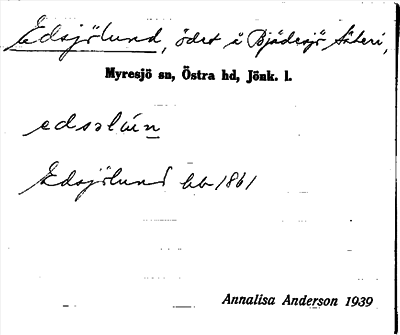 Edsjölund, ödet i Bjädesjö Säteri,
Myresjö sn, Östra hd, Jönk. l.
edsəlún
Edsjölund hb 1861
Annalisa Anderson 1939